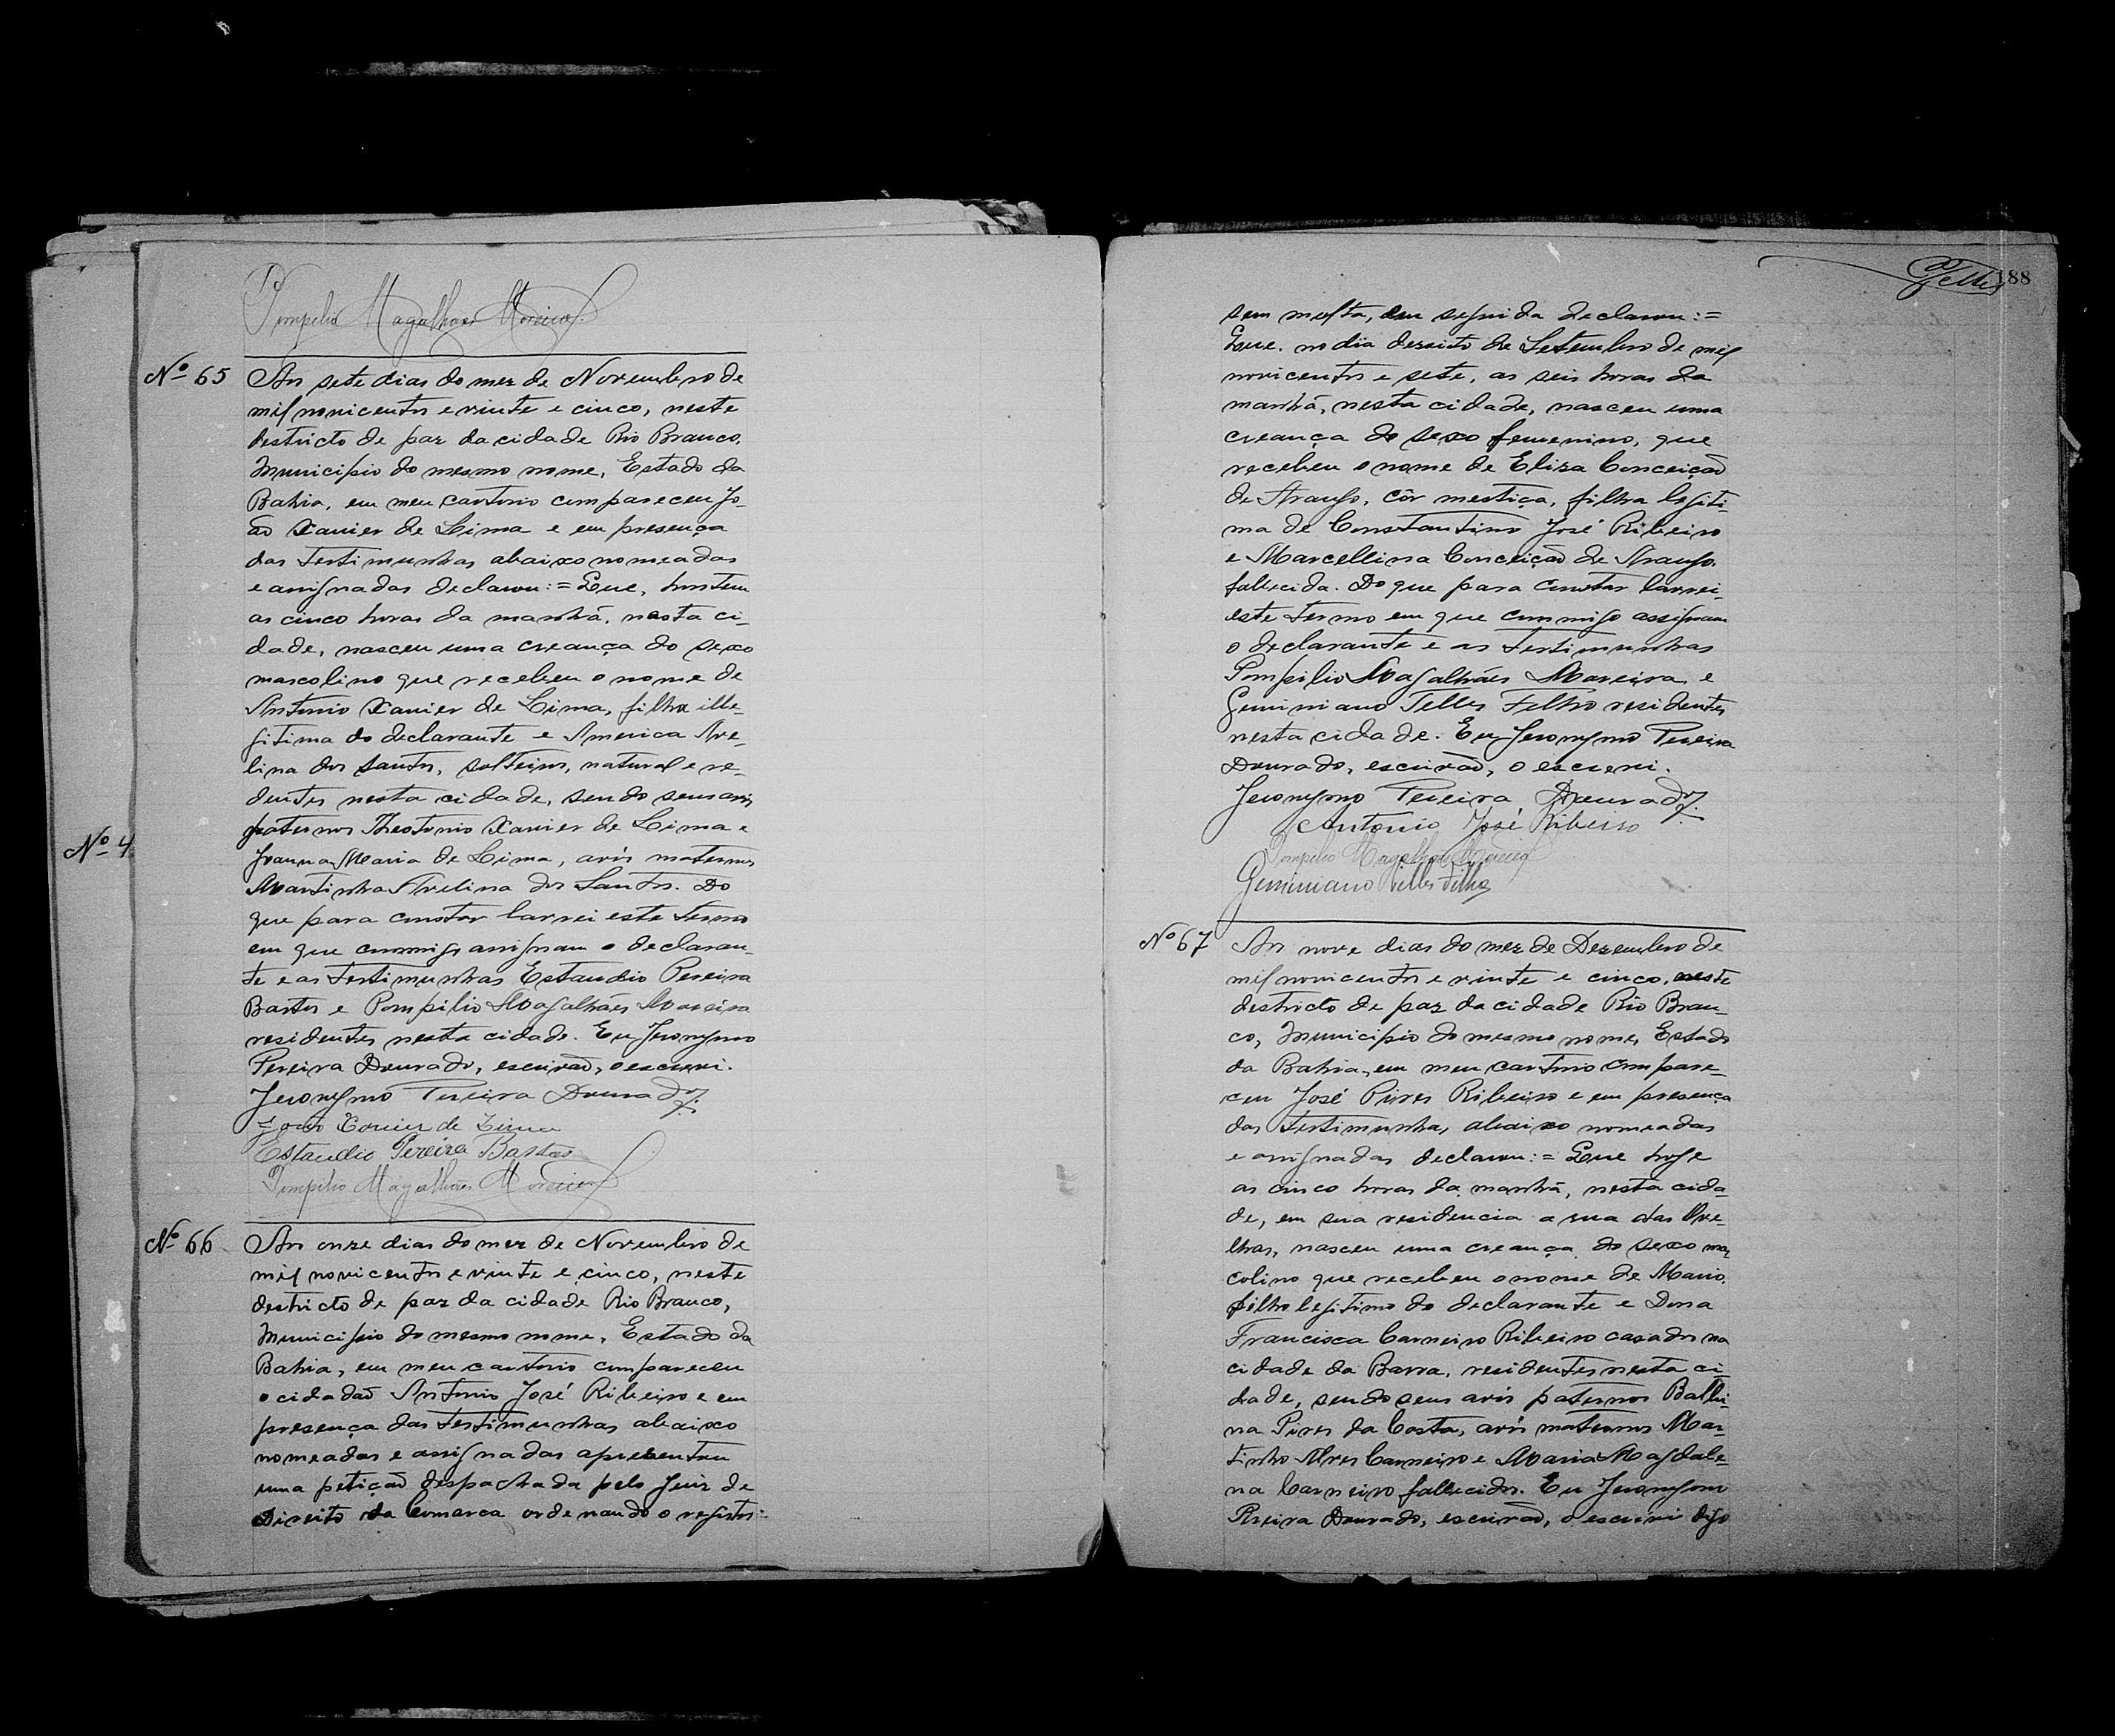 Pompilio Magalhães Moreira
Nº 65 Aos sete dias do mez de Novembro de
mil novicentos e vinte e cinco, neste
destricto de paz da cidade Rio Branco,
Municipio do mesmo nome, Estado da
Bahia, em meu cartorio compareceu Jo-
ão Xavier de Lima e em presença
das testimunhas abaixo nomeadas
e assignadas declarou:= Que, hontem
as cinco horas da manhã, nesta ci-
dade, nasceu uma creança do sexo
mascolino que recebeu o nome de
Antonio Xavier de Lima, filho ille-
gitima do declarante e America Ave-
lina dos Santos, solteiros, natural e re-
dentes nesta cidade, sendo seus avós
paternos Theotonio Xavier de Lima e
Nº 4
Joanna Maria de Lima, avós maternos
Martinha Avelina dos Santos. Do
que para constar lavrei este termo
em que commigo assignam o declaran-
te e as testimunhas Estaudio Pereira
Bastos e Pompilio Magalhães Moreira
residentes nesta cidade. Eu Jeronymo
Pereira Dourado, escrivão, o escrevi.
Jeronymo Pereira Dourado
João Xavier de Lima
Estaudio Pereira Bastos
Pompilio Magalhães Moreira
Nº 66 Aos onze dias do mez de Novembro de
mil novicentos e vinte e cinco, neste
destricto de paz da cidade Rio Branco,
Municipio do mesmo nome, Estado da
Bahia, em meu cartorio compareceu
o cidadão Antonio José Ribeiro e em
presença das testimunhas abaixo
nomeadas e assignadas apresentou
uma petição despachada pelo Juiz de
Direito da Comarca ordenando o registro
Telles 188
sem multa, em seguida declarou:=
Que no dia dezoito de Setembro de mil
novicentos e sete, as seis horas da
manhã, nesta cidade, nasceu uma
creança do sexo femenino, que
recebeu o nome de Eliza Conceição
de Araujo, côr mestiça, filha legiti
ma de Constantino José Ribeiro
e Marcellina Conceição de Araujo,
fallecida. Do que para constar lavrei
este termo em que commigo assignam
o declarante e as testimunhas
Pompilio Magalhães Moreira e
Geminiano Telles Filho residentes
nesta cidade. Eu Jeronymo Pereira
Dourado, escrivão, o escrevi.
Jeronymo Pereira Dourado
Antonio José Ribeiro
Pompilio Magalhães Moreira
Geminiano Telles Filho
Nº 67 Aos nove dias do mez de Dezembro de
mil novicentos e vinte e cinco, neste
destricto de paz da cidade Rio Bran-
co, Municipio do mesmo nome, Estado
da Bahia, em meu cartorio compare-
ceu José Pires Ribeiro e em presença
das testimunhas, abaixo nomeadas
e assignadas declarou:= Que hoje
as cinco horas da manhã, nesta cida-
de, em sua residencia a rua das Ove-
lhas, nasceu uma creança do sexo mas
colino que recebeu o nome de Mario,
filho legitimo do declarante e Dona
Francisca Carneiro Ribeiro casados na
cidade da Barra, residentes nesta ci
dade, sendo seus avós paternos Balbi-
na Pires da Costa, avós maternos Mar-
tinho Alves Carneiro e Maria Magdale-
na Carneiro fallecidos. Eu Jeronymo
Pereira Dourado, escrivão, o escrevi digo